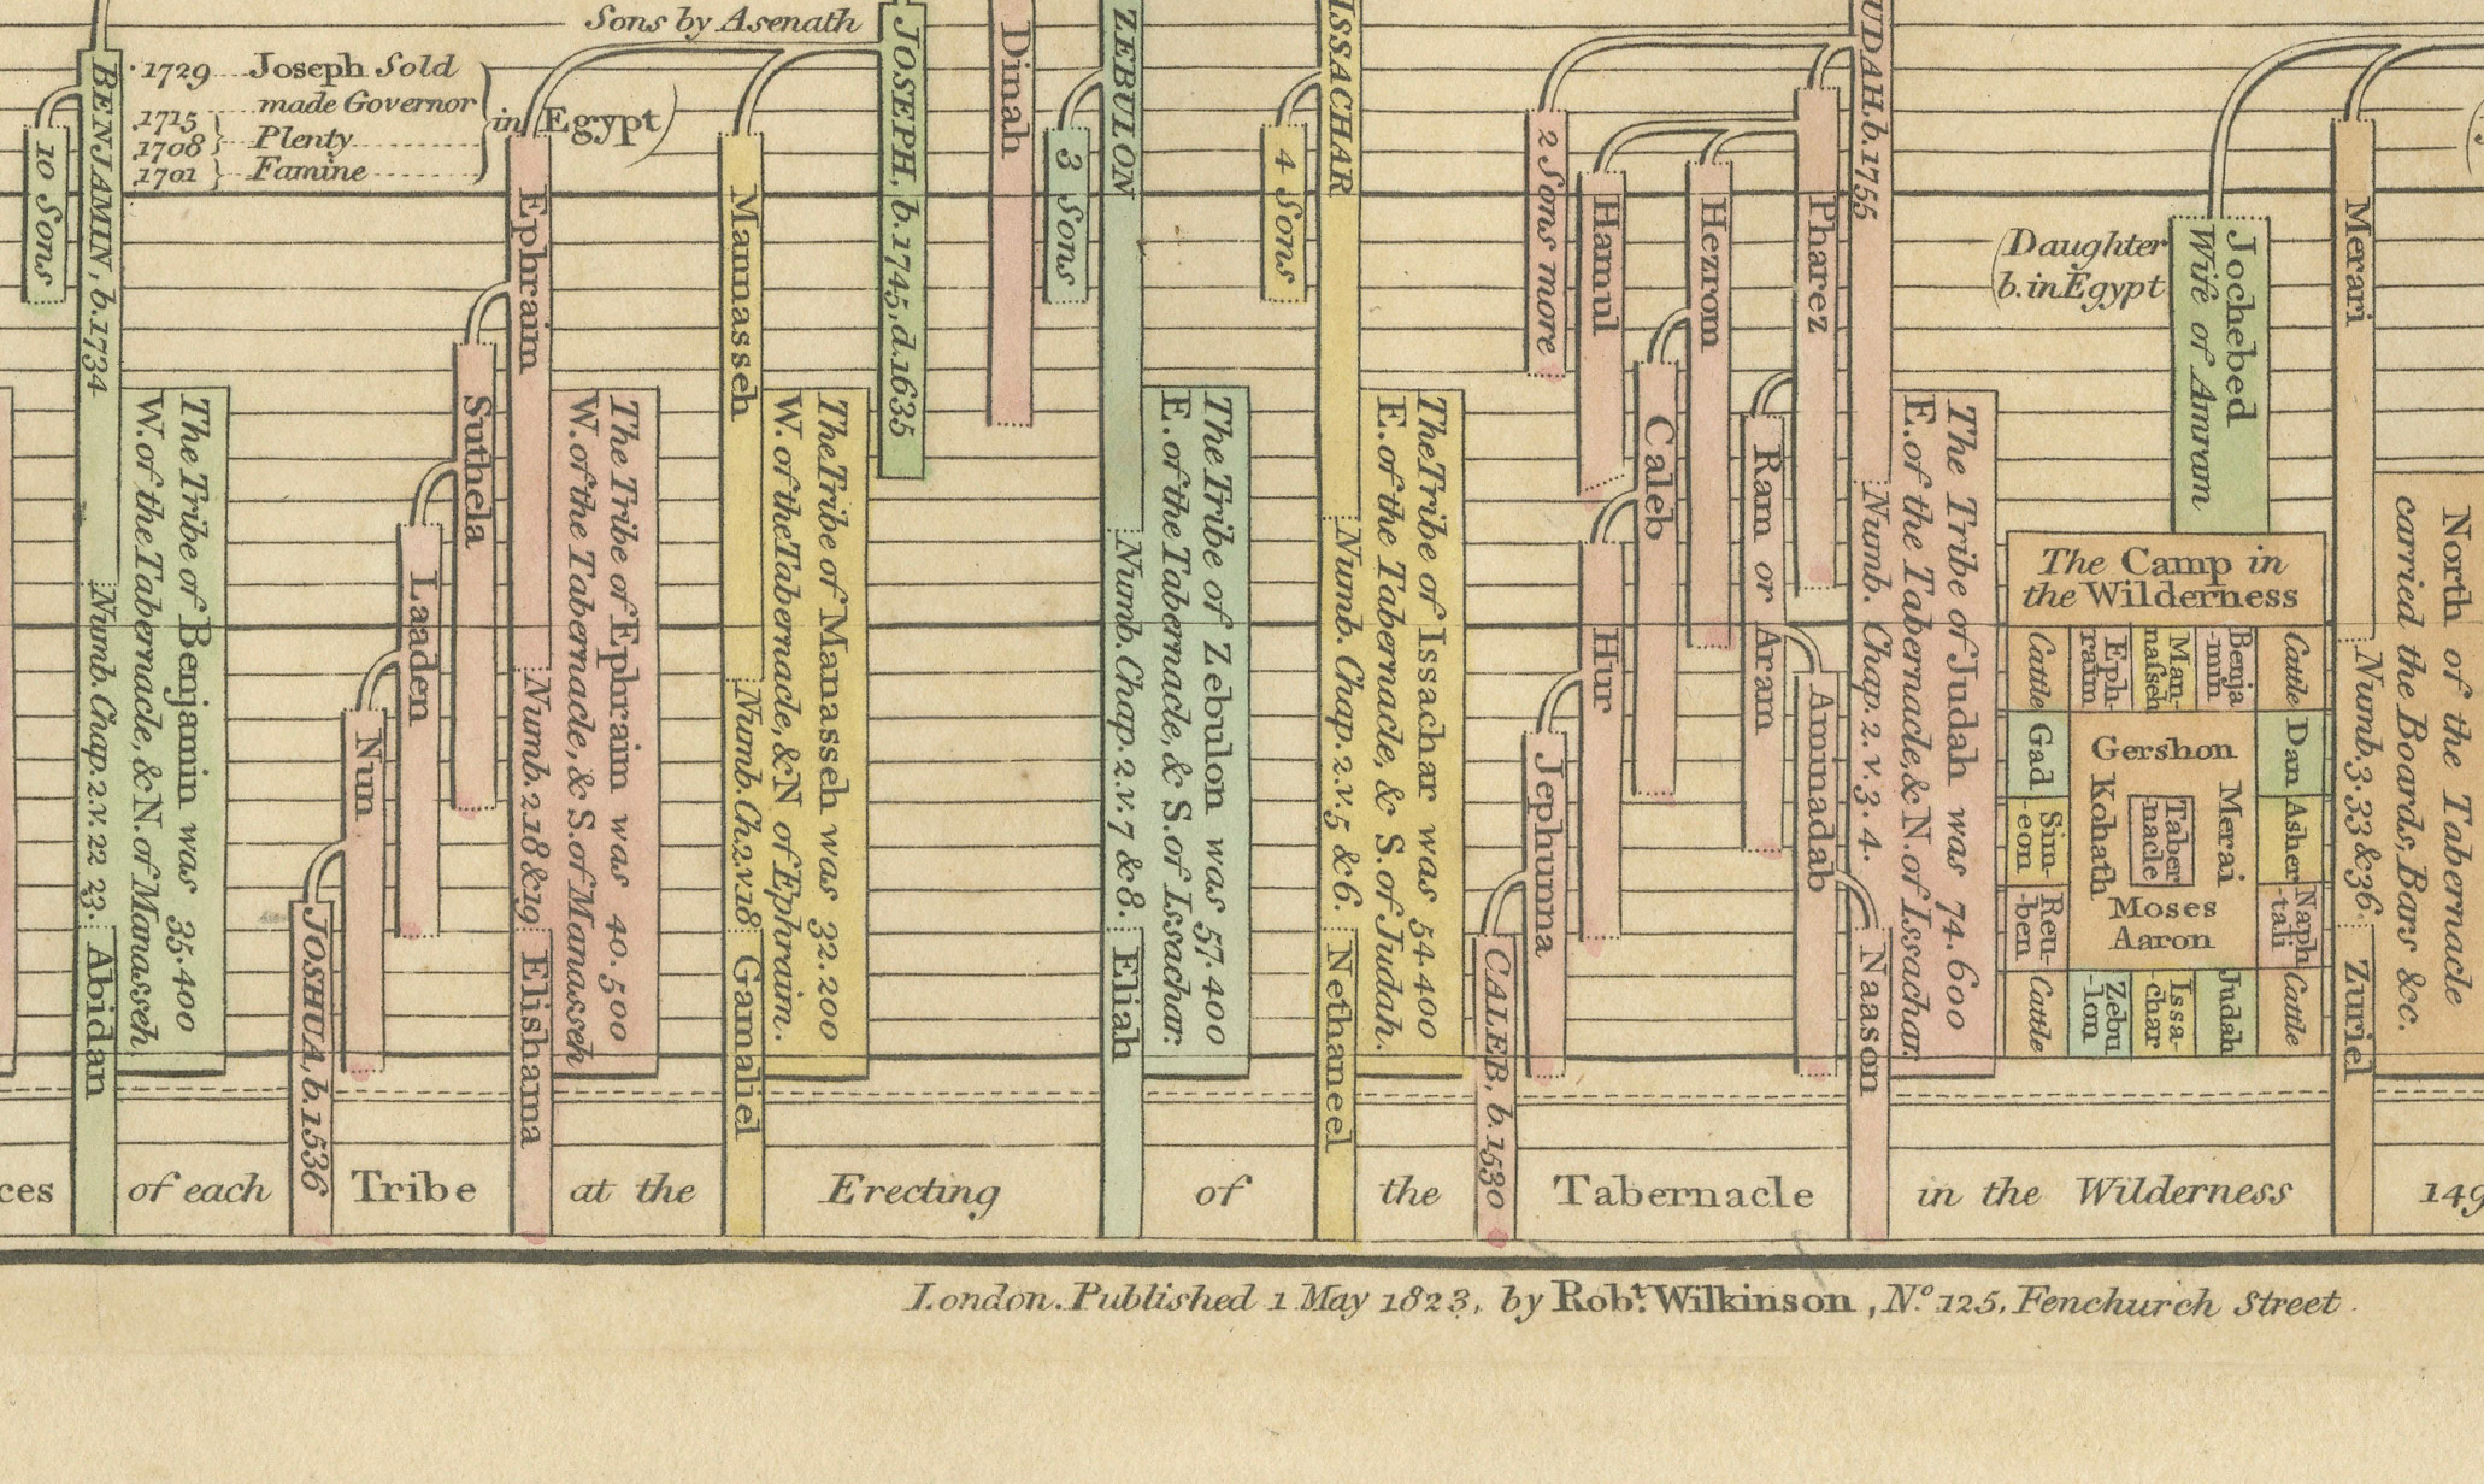 Sons by Asenath
10 Sons
BENJAMIN, b.1734
1729 Joseph Sold
made Governor
1715
1708 Plenty
1701 Famine
in Egypt
Ephraim
Manasseh
JOSEPH, b.1745, d.1635
Dinah
3 Sons
ZEBULON
4 Sons
ISSACHAR
2 Sons more
Hamul
Hezrom
Pharez
UDAH. b.1755
(Daughter
b. in Egypt
Jochebed
Wife of Amram
Merari
The Tribe of Benjamin was 35.400
W. of the Tabernacle, & N. of Manasseh
Numb. Chap. 2. v. 22 23.
Abidan
Suthela
Laaden
Nun
JOSHUA, b.1536
The Tribe of Ephraim was 40.500
W. of the Tabernacle, & S. of Manasseh
Numb. 2.18 & 19
Elishama
The Tribe of Manasseh was 32.200
W. of the Tabernacle, & N of Ephraim.
Numb. Ch. 2. v. 18
Gamaliel
The Tribe of Zebulon was 57.400
E. of the Tabernacle, & S. of Issachar.
Numb. Chap. 2. v. 7 & 8.
Eliah
The Tribe of Issachar was 54.400
E. of the Tabernacle, & S. of Judah.
Numb. Chap. 2. v. 5 & 6.
Nethaneel
Caleb
Hur
Jephunna
CALEB, b.1530
Ram or Aram
Aminadab
Naason
The Tribe of Judah was 74.600
E. of the Tabernacle, & N. of Issachar.
Numb. Chap. 2. v. 3. 4.
The Camp in
the Wilderness
Cattle
Eph-
raim
Man-
naſseh
Benja
-min
Cattle
Gad
Gershon
Dan
Sim-
-eon
Kohath
Taber
-nacle
Merai
Asher
Reu-
-ben
Moses
Aaron
Naph
-tali
Cattle
Zebu
-lon
Issa-
-char
Judah
Cattle
Numb. 3. 33 & 36.
Zuriel
North of the Tabernacle
carried the Boards, Bars &c.
ces of each Tribe at the Erecting of the Tabernacle in the Wilderness 149
London. Published 1 May 1823, by Robt. Wilkinson, No. 125, Fenchurch Street.